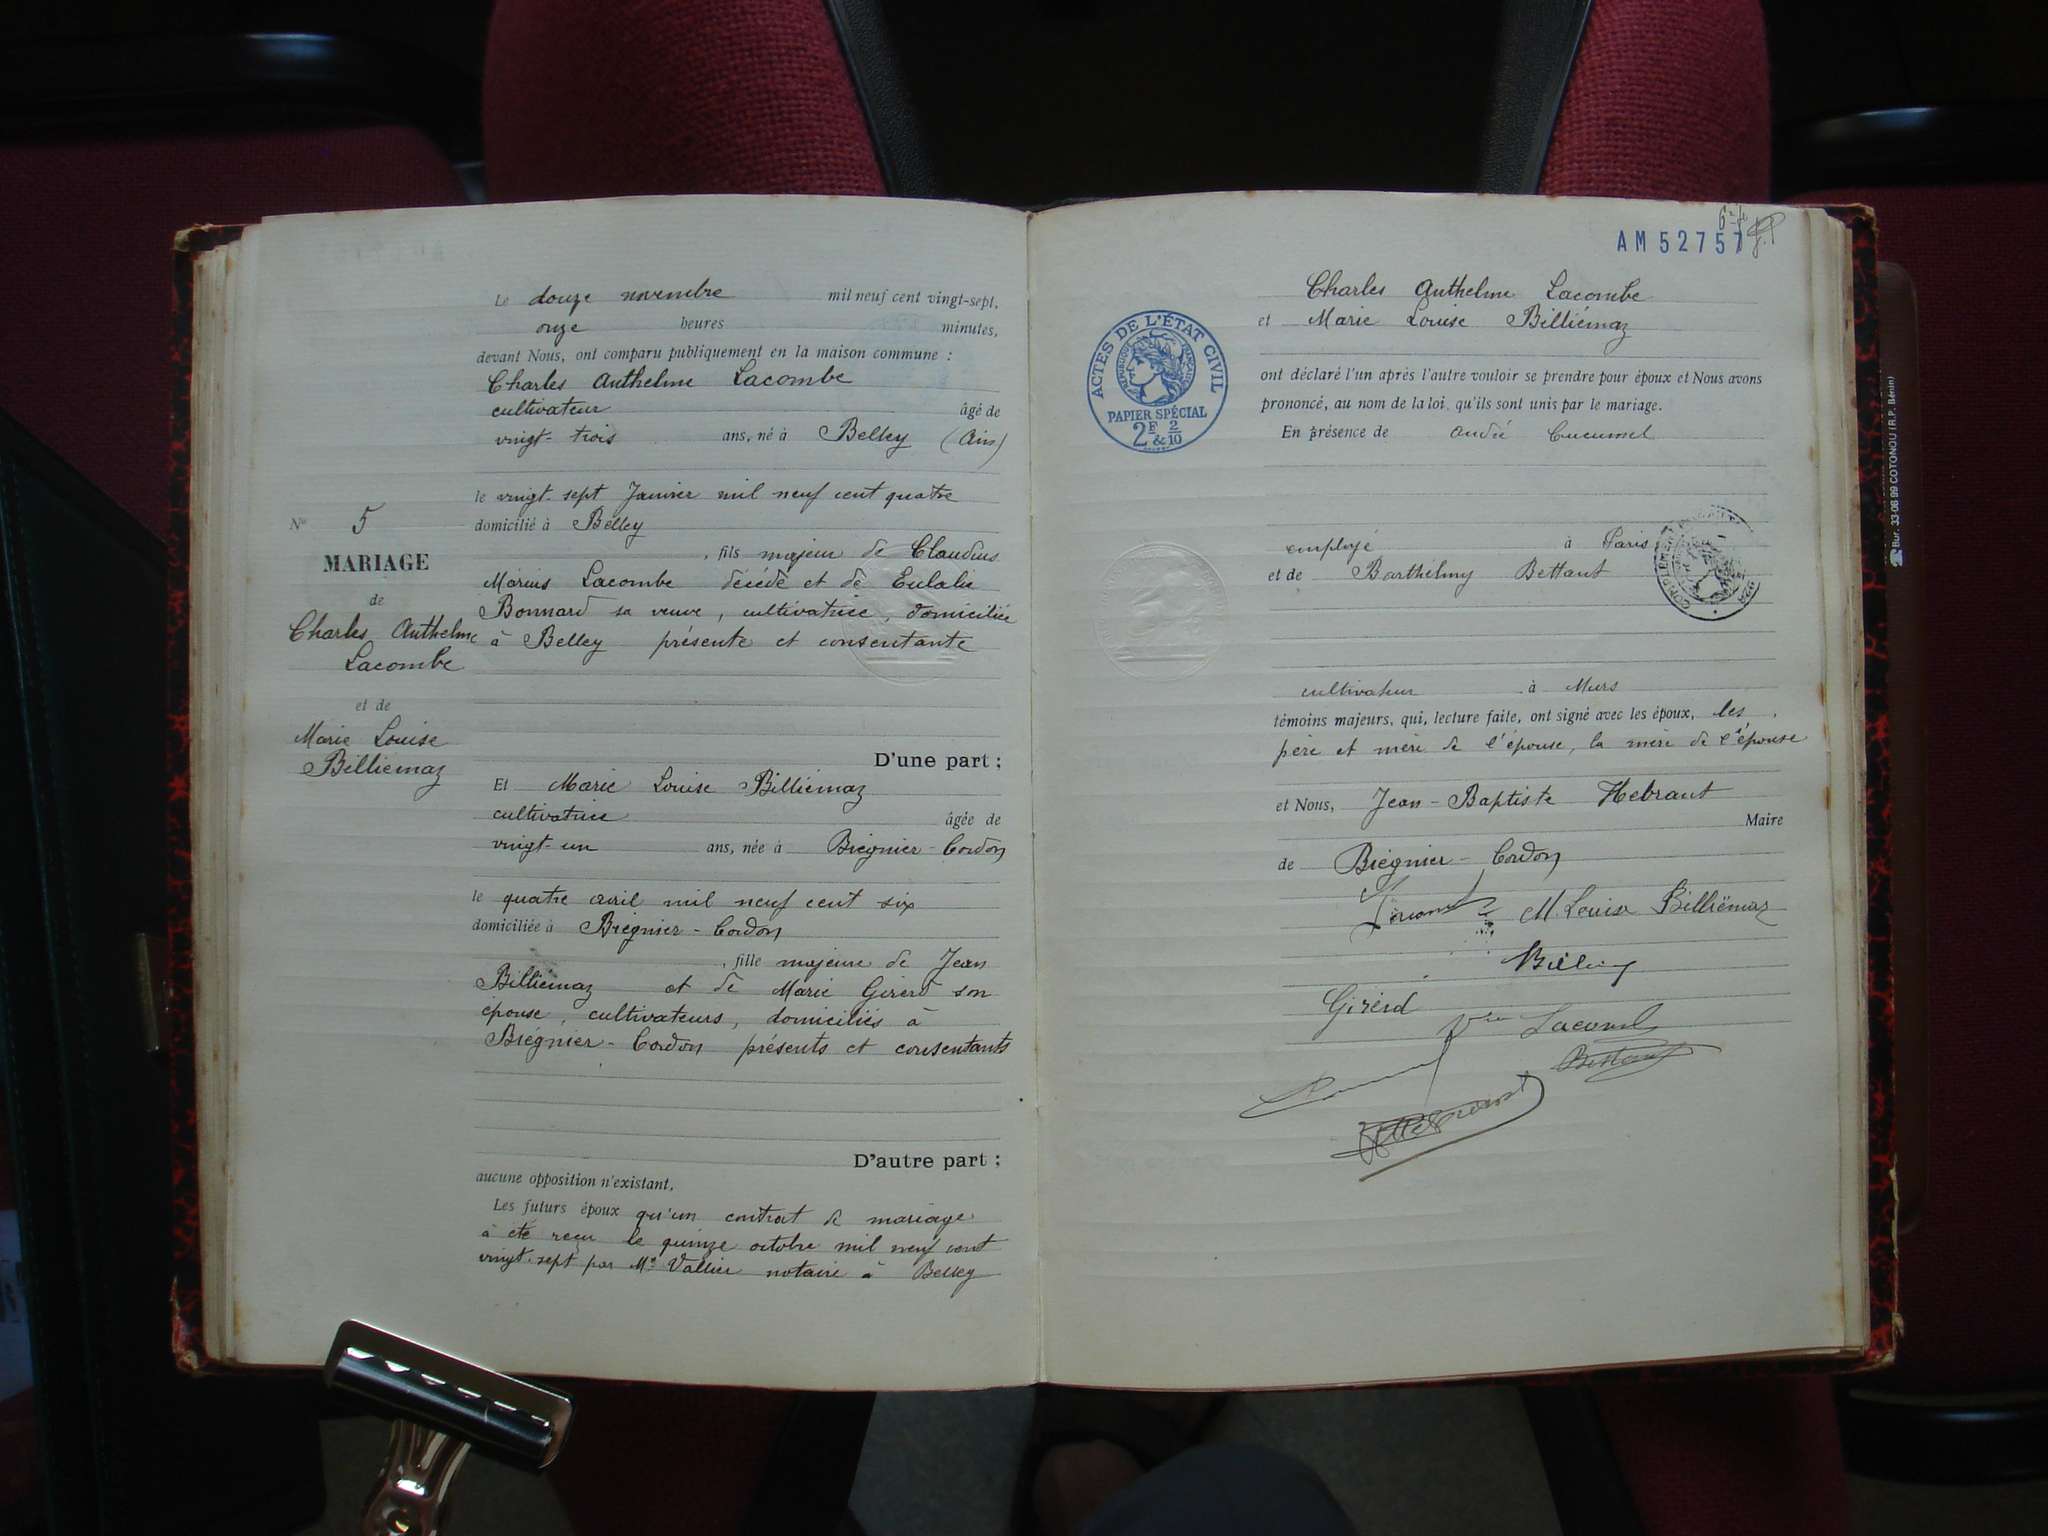 Le douze novembre mil neuf cent vingt-sept,
onze heures minutes,
devant Nous, ont comparu publiquement en la maison commune :
Charles Anthelme Lacombe
cultivateur âgé de
vingt-trois ans, né à Belley (Ain)
le vingt-sept Janvier mil neuf cent quatre
domicilié à Belley
, fils majeur de Claudius
Marius Lacombe décédé et de Eulalie
Bonnard sa veuve, cultivatrice, domiciliée
à Belley présente et consentante
No 5
MARIAGE
de
Charles Anthelme
Lacombe
et de
Marie Louise
Billiémaz
D'une part ;
Et Marie Louise Billiémaz
cultivatrice âgée de
vingt-un ans, née à Brégnier-Cordon
le quatre avril mil neuf cent six
domiciliée à Brégnier-Cordon
, fille majeure de Jean
Billiémaz et de Marie Girerd son
épouse, cultivateurs, domiciliés à
Brégnier-Cordon présents et consentants
D'autre part ;
aucune opposition n'existant,
Les futurs époux qu'un contrat de mariage
à été reçu le quinze octobre mil neuf cent
vingt-sept par Me Vallier notaire à Belley
AM 52757
ACTES DE L'ÉTAT CIVIL
RÉPUBLIQUE FRANÇAISE
PAPIER SPÉCIAL
2F & 2/10
Charles Anthelme Lacombe
et Marie Louise Billiémaz
ont déclaré l'un après l'autre vouloir se prendre pour époux et Nous avons
prononcé, au nom de la loi, qu'ils sont unis par le mariage.
En présence de André Cucumel
employé à Paris
et de Barthélmy Bettant
cultivateur à Murs
témoins majeurs, qui, lecture faite, ont signé avec les époux, les
père et mère de l'épouse, la mère de l'épouse
et Nous, Jean-Baptiste Hebrant
Maire
de Brégnier-Cordon
M. Louise Billiémaz
Girerd
Vve Lacombe
Bettant
Hebrant
Bur. 33 06 99 COTONOU (R.P. Bénin)